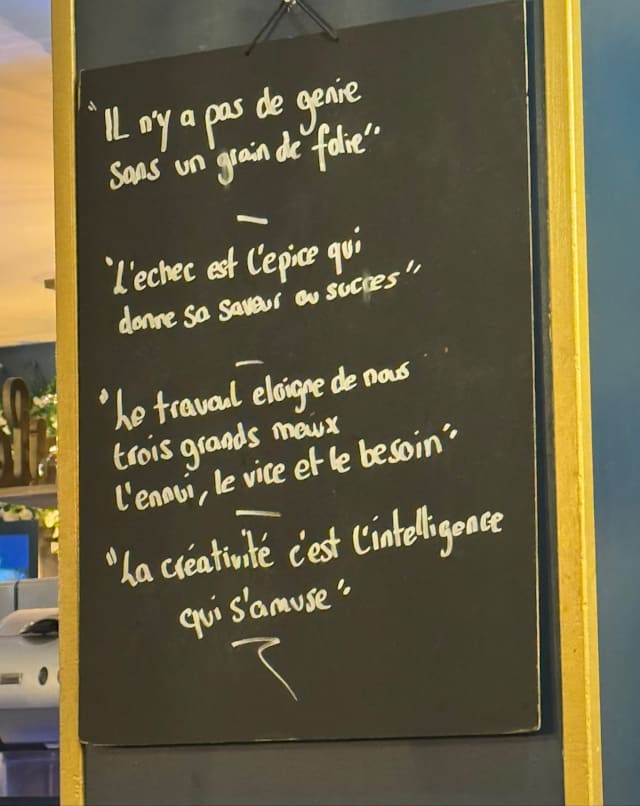 "IL n'y a pas de genie
sans un grain de folie"
"L'echec est l'epice qui
donne sa saveur au succes"
"Le travail eloigne de nous
trois grands maux
l'ennui, le vice et le besoin"
"La créativité c'est l'intelligence
qui s'amuse"